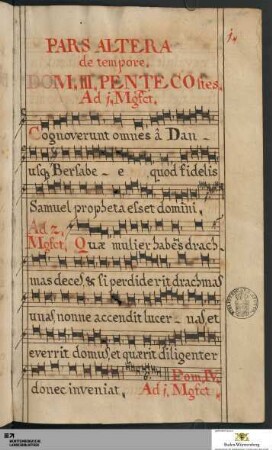 j.
PARS ALTERA
de tempore.
DOM. III. PENTECOstes.
Ad j. Mgfct.
Cognoverunt omnes â Dan-
usq Bersabe - e quod fidelis
Samuel propheta esset domini.
Ad 2.
Mgfct. Quæ mulier habēs drach
mas decē, & si perdiderit drachmas
unas nonne accendit lucer - nas et
everrit domū, et quærit diligenter
Dom. IV.
donec inveniat. Ad j. Mgfct.
Baden-Württemberg